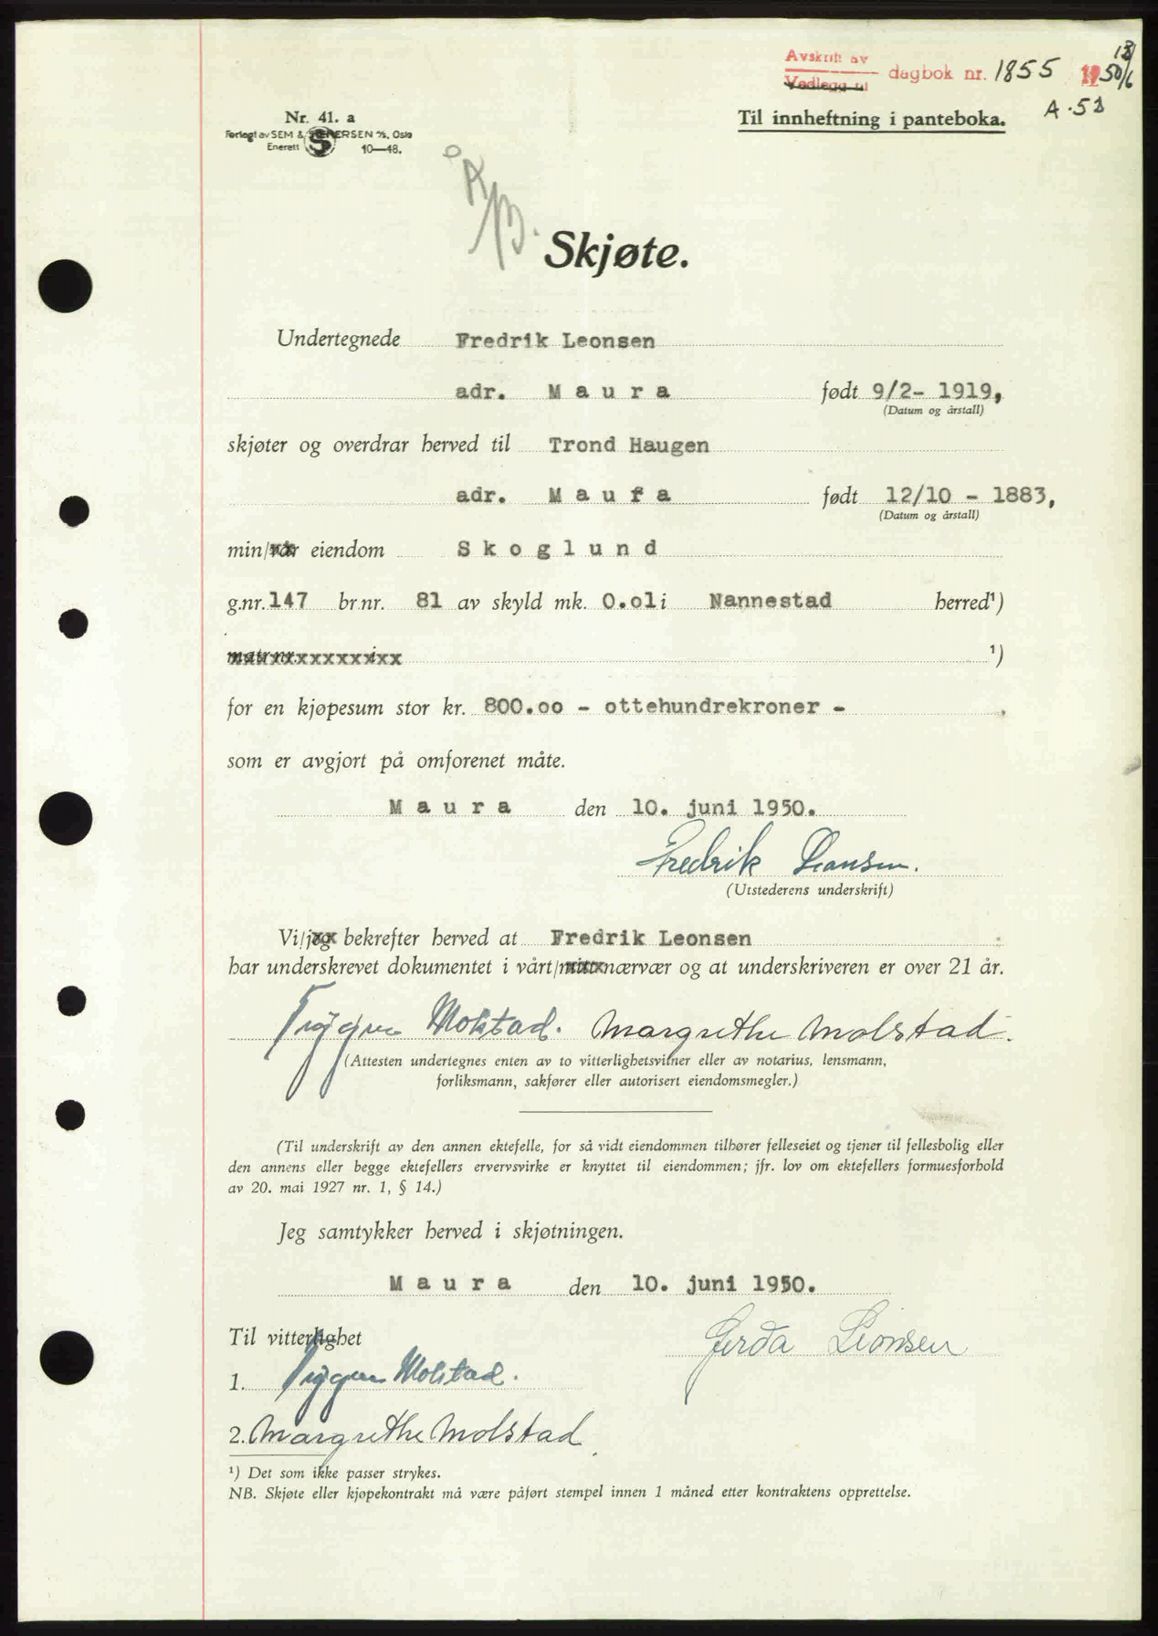 Avskrift av
Vedlegg til dagbok nr. 1855 1950 13/6
A-53
Nr. 41. a
Forlagt av SEM & STENERSEN A/S, Oslo
Enerett 10—48.
Til innheftning i panteboka.
Skjøte.
Undertegnede Fredrik Leonsen
adr. M a u r a født 9/2- 1919,
(Datum og årstall)
skjøter og overdrar herved til Trond Haugen
adr. M a u r a født 12/10 - 1883,
(Datum og årstall)
min/vår eiendom S k o g l u n d
g.nr. 147 br.nr. 81 av skyld mk. 0.ol i Nannestad herred¹)
matr.nr. xxxxxxxx i xx ¹)
for en kjøpesum stor kr. 800.oo - ottehundrekroner - .
som er avgjort på omforenet måte.
M a u r a den 10. juni 1950.
Fredrik Leonsen.
(Utstederens underskrift)
Vi/jeg bekrefter herved at Fredrik Leonsen
har underskrevet dokumentet i vårt/mitt nærvær og at underskriveren er over 21 år.
Tryggve Molstad. Margrethe Molstad.
(Attesten undertegnes enten av to vitterlighetsvitner eller av notarius, lensmann,
forliksmann, sakfører eller autorisert eiendomsmegler.)
(Til underskrift av den annen ektefelle, for så vidt eiendommen tilhører felleseiet og tjener til fellesbolig eller
den annens eller begge ektefellers ervervsvirke er knyttet til eiendommen; jfr. lov om ektefellers formuesforhold
av 20. mai 1927 nr. 1, § 14.)
Jeg samtykker herved i skjøtningen.
M a u r a den 10. juni 1950.
Til vitterlighet Gerda Leonsen
1. Tryggve Molstad.
2. Margrethe Molstad.
¹) Det som ikke passer strykes.
NB. Skjøte eller kjøpekontrakt må være påført stempel innen 1 måned etter kontraktens opprettelse.